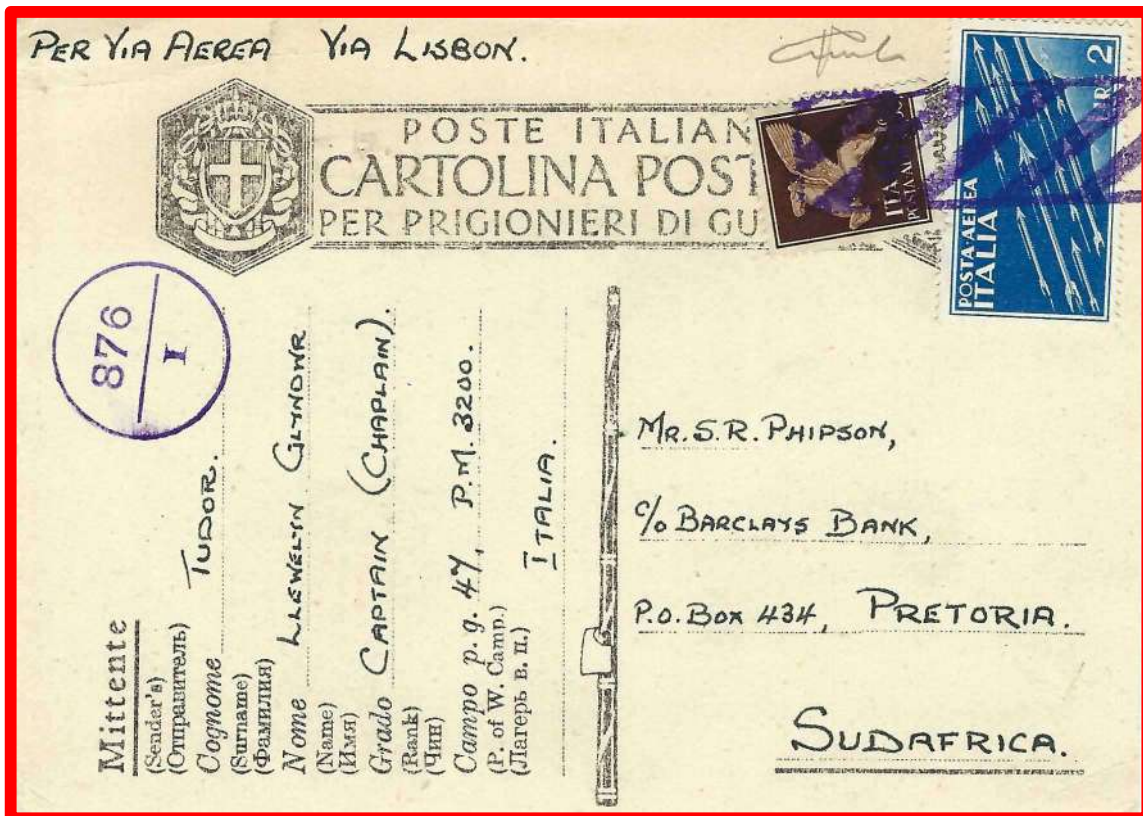 PER VIA AEREA VIA LISBON.
POSTE ITALIAN
CARTOLINA POST
PER PRIGIONIERI DI GU
ITA
POSTA AE
LIRE 2
POSTA AEREA
ITALIA
876
I
Mittente
(Sender's)
(Отправитель)
Cognome TUDOR.
(Surname)
(Фамилия)
Nome LLEWELYN GLYNDWR
(Name)
(Имя)
Grado CAPTAIN (CHAPLAIN).
(Rank)
(Чин)
Campo p. g. 47, P.M. 3200.
(P. of W. Camp.)
(Лагерь в. п.)
ITALIA.
MR. S. R. PHIPSON,
c/o BARCLAYS BANK,
P.O. BOX 434, PRETORIA.
SUDAFRICA.